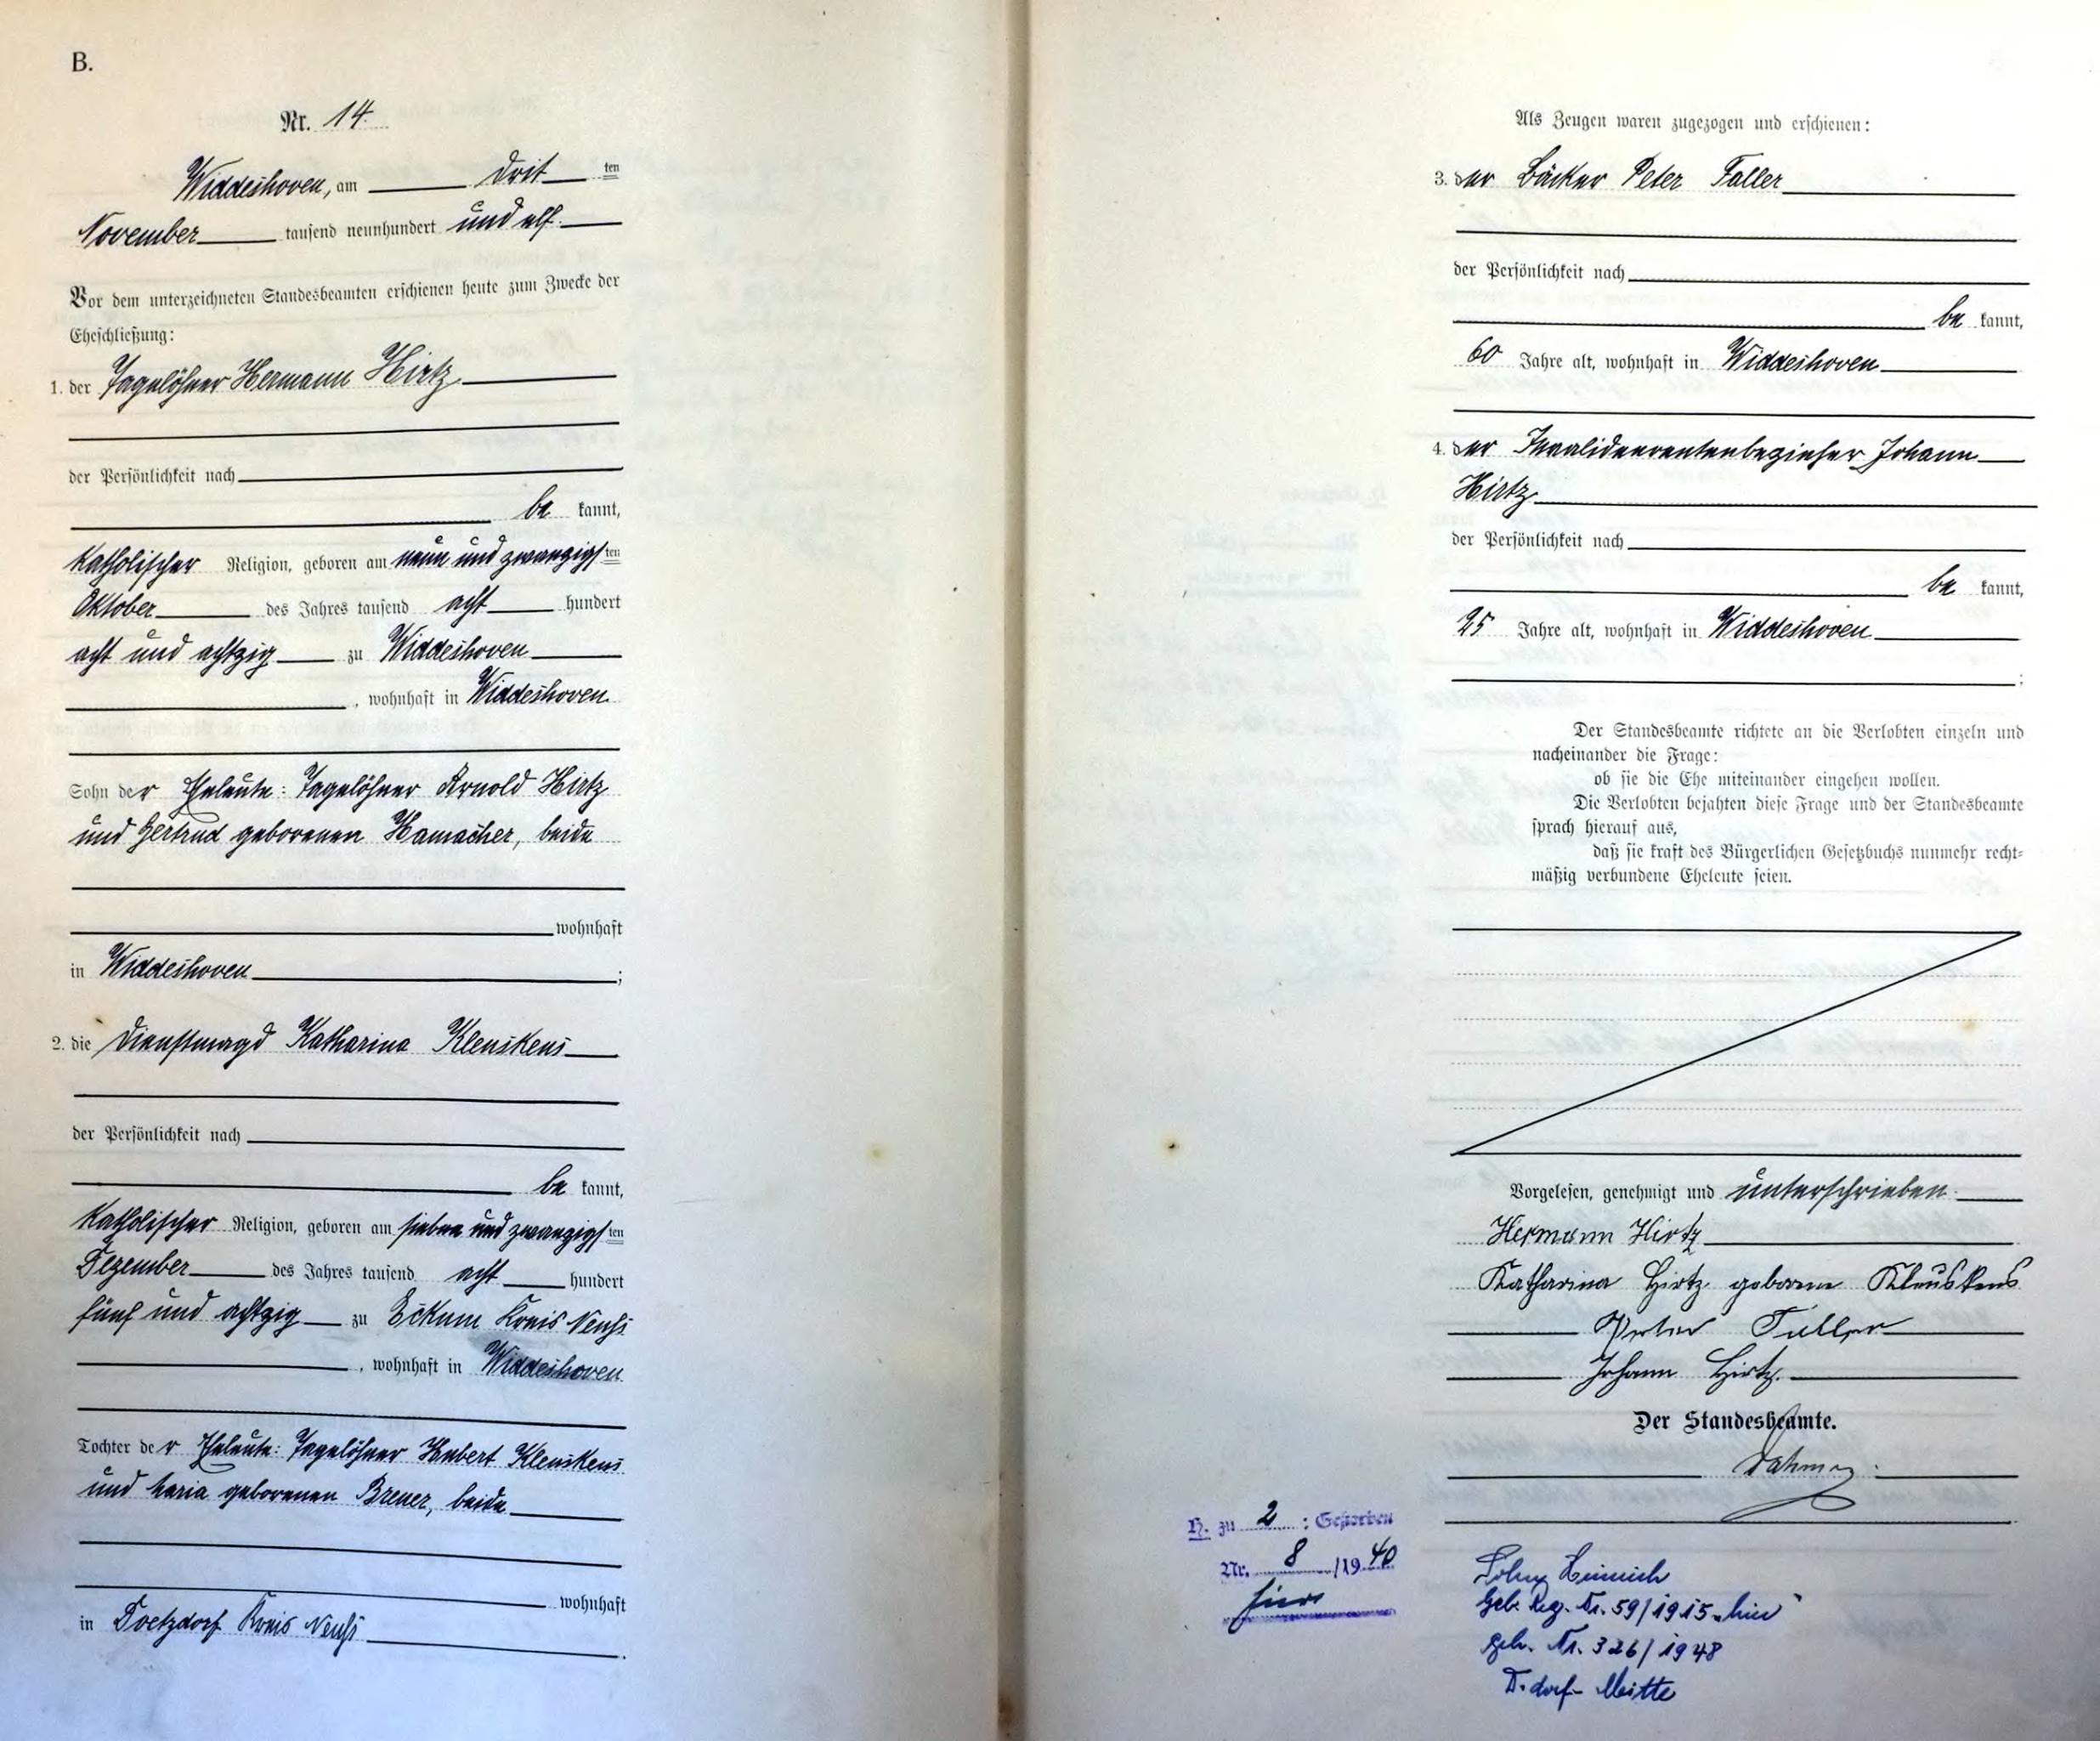 B.
Nr. 14.
Widdeshoven, am drit ten
November tausend neunhundert und elf.
Vor dem unterzeichneten Standesbeamten erschienen heute zum Zwecke der
Eheschließung:
1. der Tagelöhner Hermann Hirtz
der Persönlichkeit nach
be kannt,
katholischer Religion, geboren am neun und zwanzigsten
Oktober des Jahres tausend acht hundert
acht und achtzig zu Widdeshoven
, wohnhaft in Widdeshoven
Sohn der Eheleute: Tagelöhner Arnold Hirtz
und Gertrud geborenen Hamacher, beide
wohnhaft
in Widdeshoven ;
2. die Dienstmagd Katharina Kleuskens
der Persönlichkeit nach
be kannt,
katholischer Religion, geboren am sieben und zwanzigsten
Dezember des Jahres tausend acht hundert
fünf und achtzig zu Eckum Kreis Neuß
, wohnhaft in Widdeshoven
Tochter der Eheleute: Tagelöhner Hubert Kleuskens
und Maria geborenen Breuer, beide
wohnhaft
in Poetzdorf Kreis Neuß .
Als Zeugen waren zugezogen und erschienen:
3. der Bäcker Peter Faller
der Persönlichkeit nach
be kannt,
60 Jahre alt, wohnhaft in Widdeshoven
4. der Invalidenrentenbezieher Johann
Hirtz
der Persönlichkeit nach
be kannt,
25 Jahre alt, wohnhaft in Widdeshoven
;
Der Standesbeamte richtete an die Verlobten einzeln und
nacheinander die Frage:
ob sie die Ehe miteinander eingehen wollen.
Die Verlobten bejahten diese Frage und der Standesbeamte
sprach hierauf aus,
daß sie kraft des Bürgerlichen Gesetzbuchs nunmehr recht-
mäßig verbundene Eheleute seien.
Vorgelesen, genehmigt und unterschrieben.
Hermann Hirtz
Katharina Hirtz geborene Kleuskens
Peter Faller
Johann Hirtz.
Der Standesbeamte.
Dahmen.
H. zu 2 : Gestorben
Nr. 8 /1940
hier
Sohn Heinrich
Geb. Reg. Nr. 59/1915 "hier"
Geh. Nr. 326/1948
D.dorf-Mitte